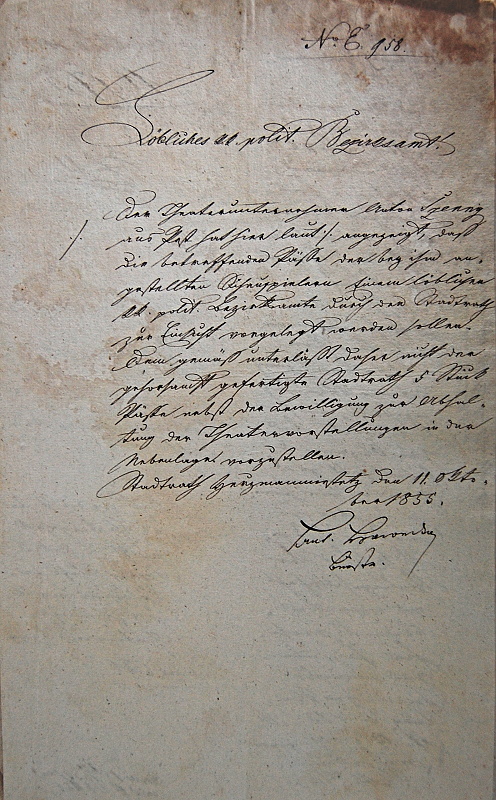 No. E. 958.
Löbliches kk. polit. Bezirksamt!
Der Theaterunternehmer Anton
./. aus Pest hat hier laut ./. angezeigt, daß
die betreffenden Pässe der bey ihm an-
gestellten Schauspielern Einem löblichen
kk. polit. Bezirksamte durch den Stadtrath
zur Einsicht vorgelegt werden sollen.
Dem gemäß unterläßt daher nicht der
gehorsamst gefertigte Stadtrath 5 Stück
Pässe nebst der Bewilligung zur Abhal-
tung der Theatervorstellungen in der
Nebenlage vorzustellen.
Stadtrath den 11. Okto-
ber 1855.